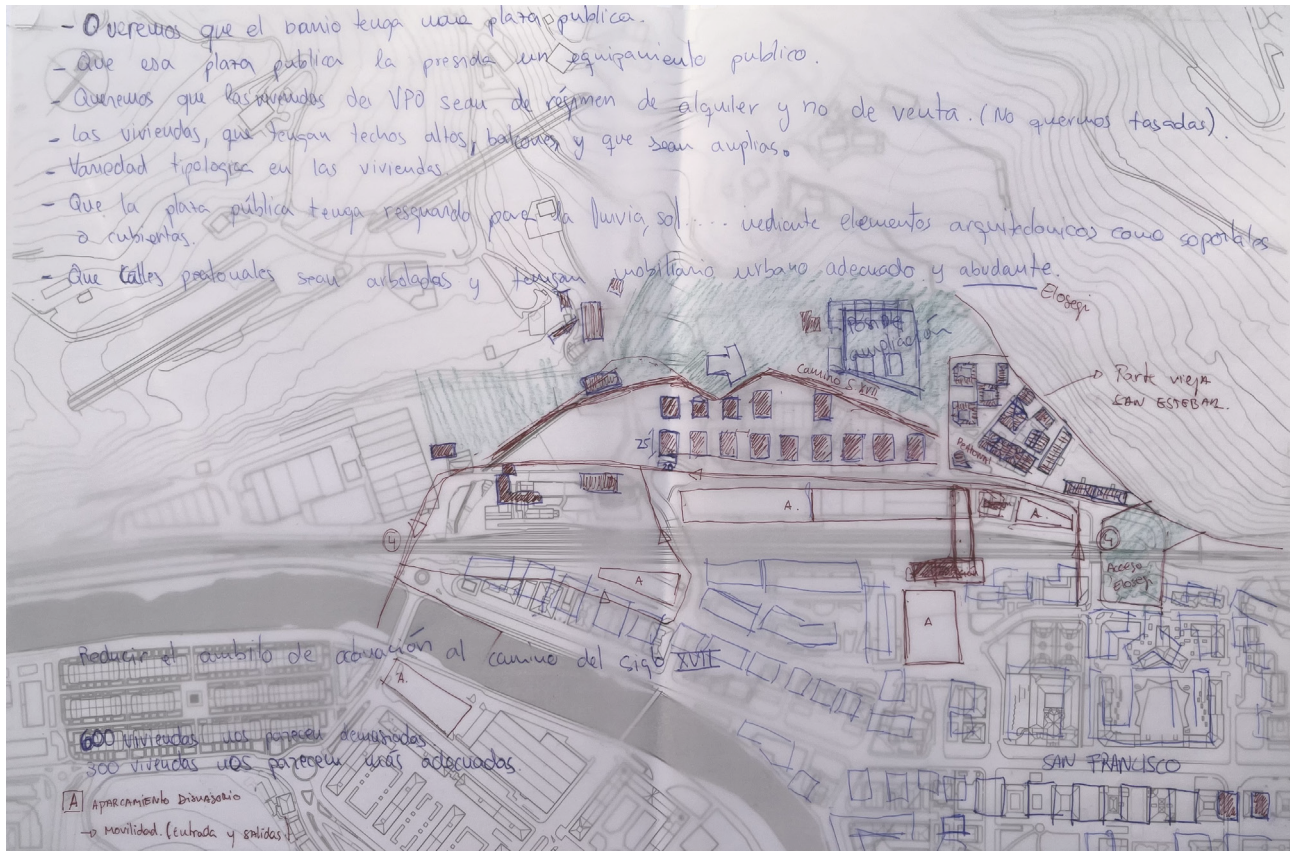 - Queremos que el barrio tenga una plaza publica.
- Que esa plaza publica la presida un equipamiento publico.
- Queremos que las viviendas de VPO sean de régimen de alquiler y no de venta. (No queremos tasadas).
- Las viviendas, que tengan techos altos, balcones y que sean amplias.
- Variedad tipologica en las viviendas.
- Que la plaza pública tenga resguardo para la lluvia, sol.... mediante elementos arquitectonicos como soportales
o cubiertas.
- Que calles peatonales sean arboladas y tengan mobiliario urbano adecuado y abudante.
Elosegi
posible
ampliación
Camino S. XVII
Parte vieja
SAN ESTEBAN.
Peatonal
25
20
A.
A
4
4
Acceso
Elosegi
A
A
Reducir el ambito de actuación al camino del siglo XVII
A.
600 viviendas nos parecen demasiadas
300 viviendas nos parecen más adecuadas.
SAN FRANCISCO
A APARCAMIENTO DISUASORIO
→ MOVILIDAD. (Entrada y salidas)